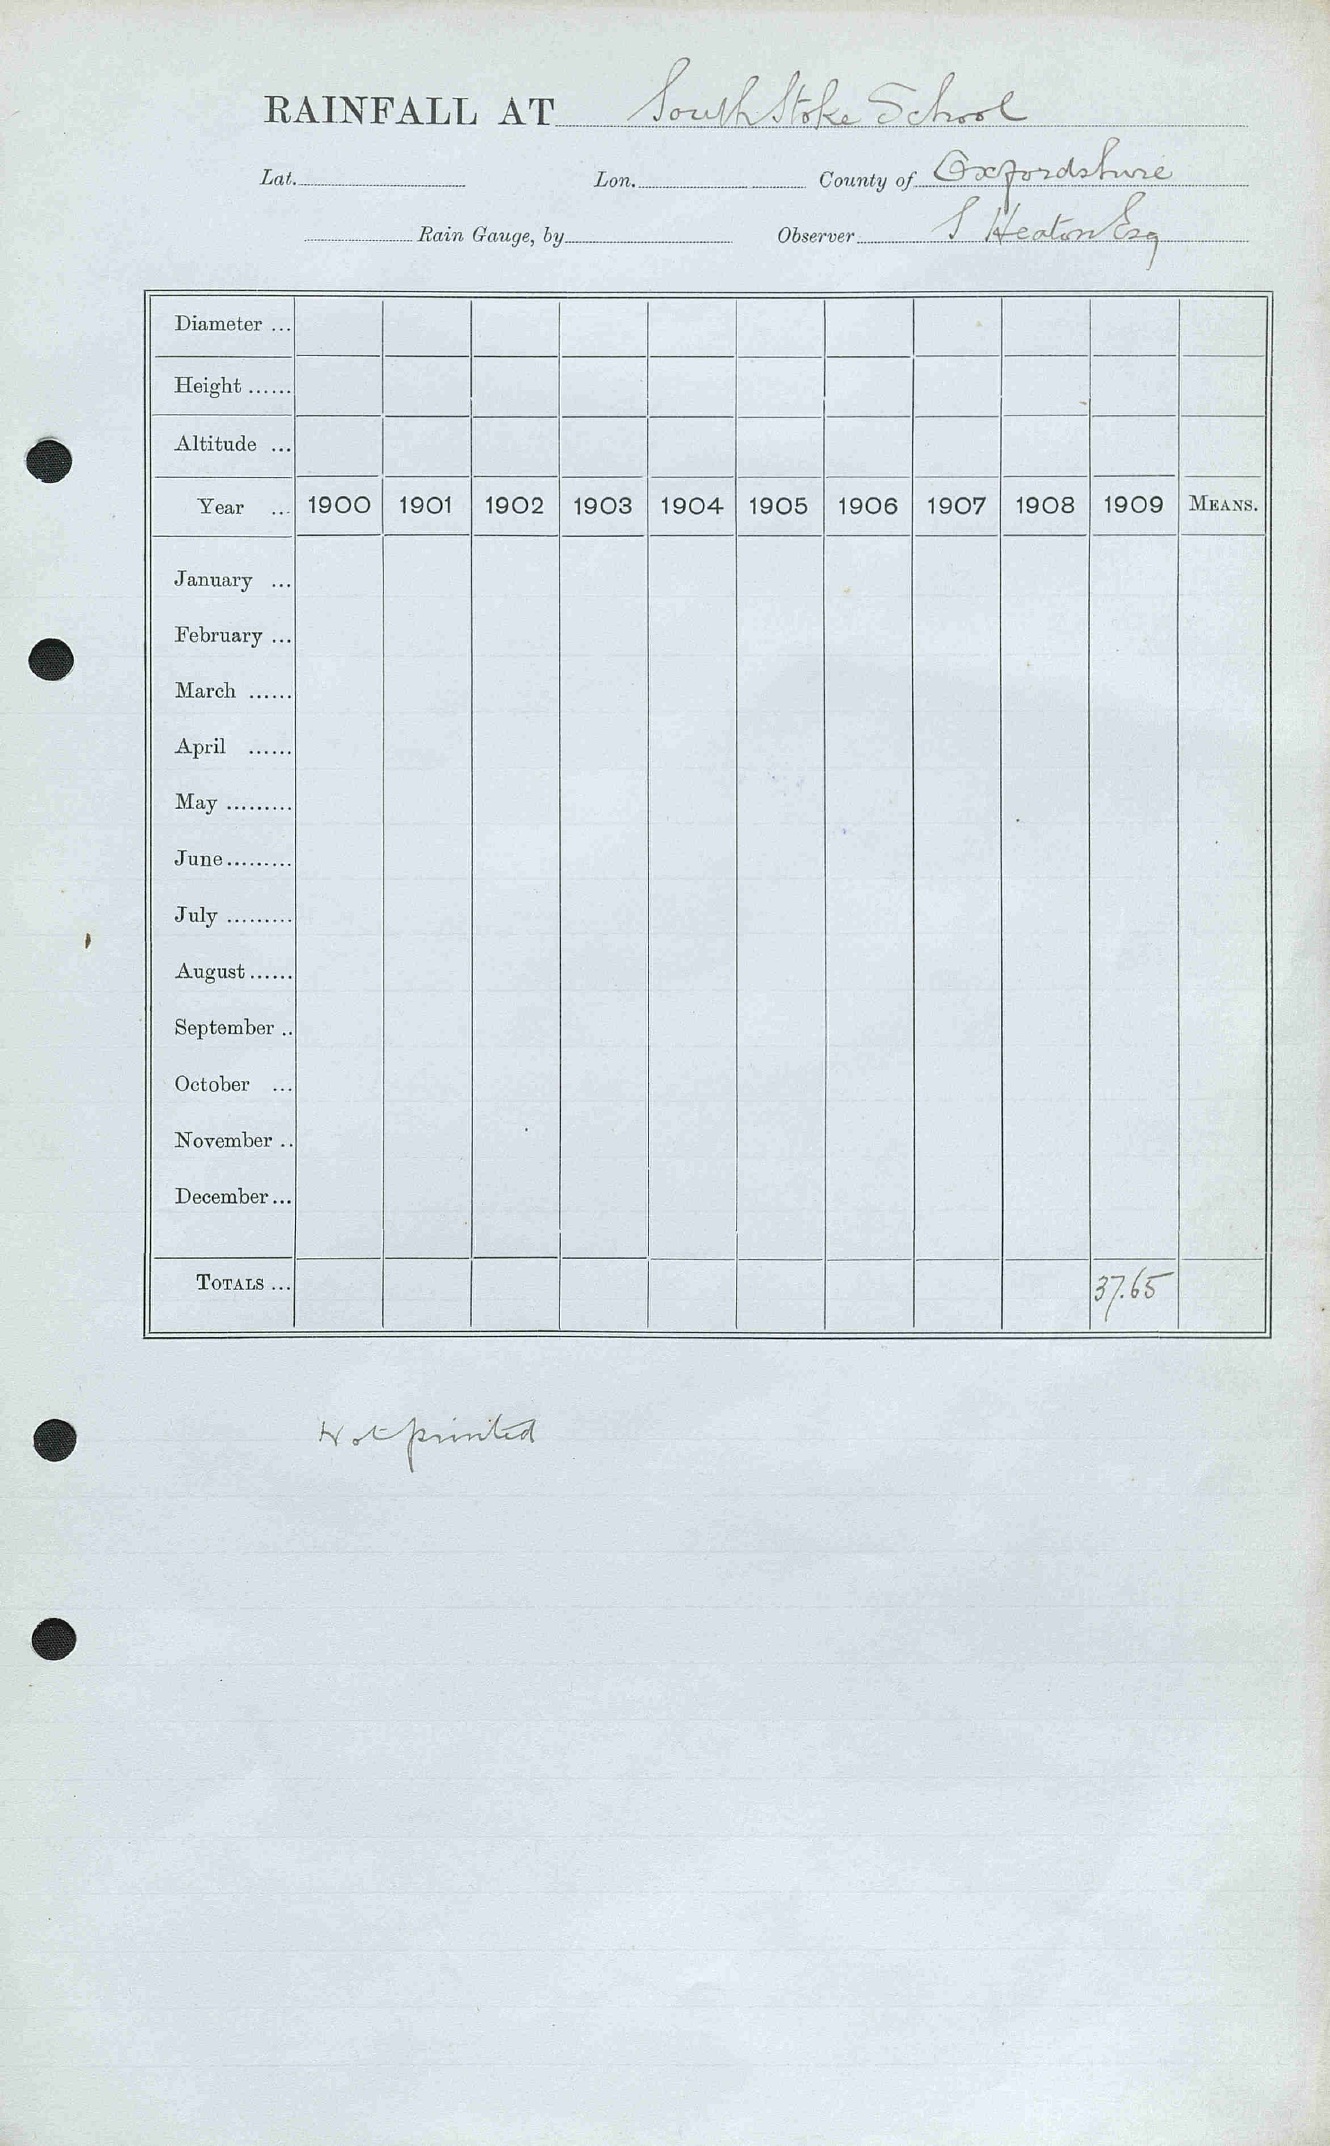 RAINFALL AT South Stoke School
Lat. Lon. County of Oxfordshire
Rain Gauge, by Observer S Heaton Esq
Diameter ...
Height ......
Altitude ...
Year ... 1900 1901 1902 1903 1904 1905 1906 1907 1908 1909 MEANS.
January ...
February ...
March ......
April ......
May .........
June .........
July .........
August ......
September ..
October ...
November ..
December ...
TOTALS ... 37.65
Not printed